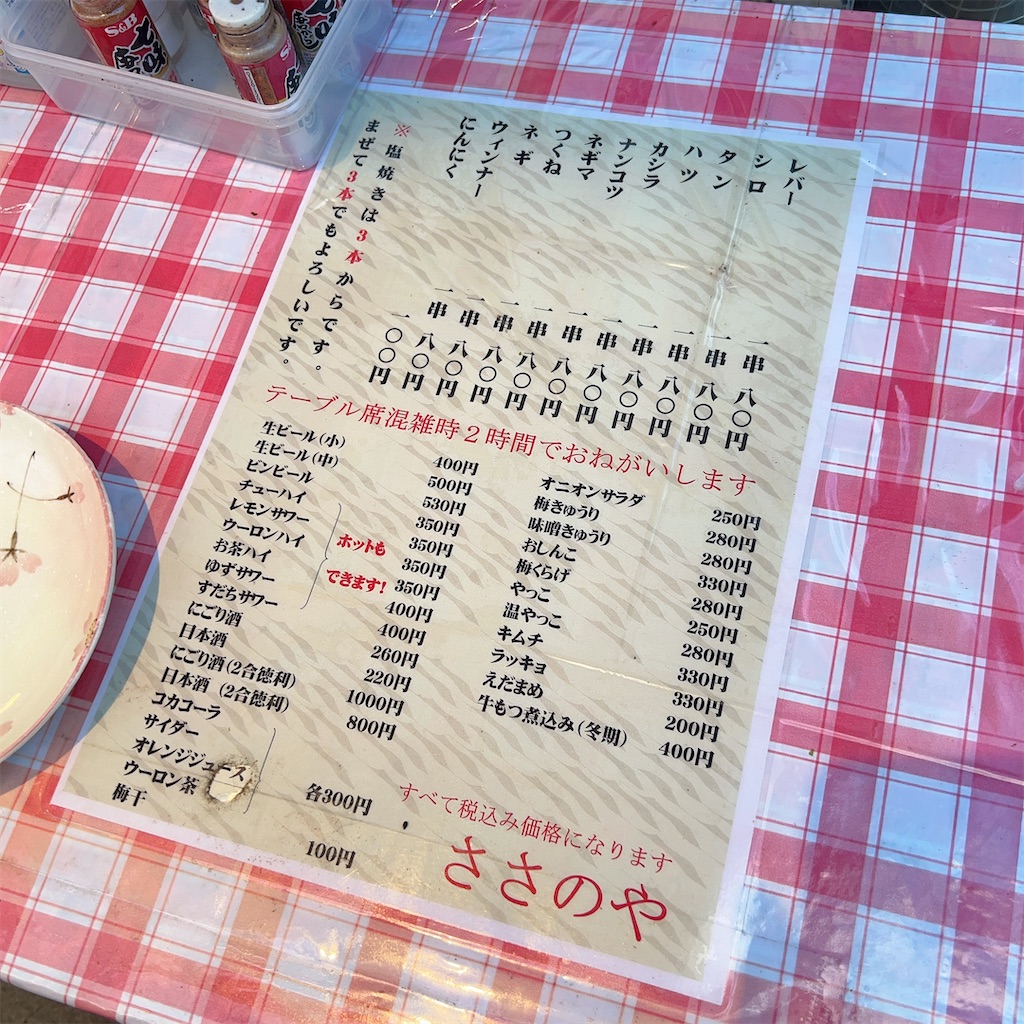 S&B
S&B
レバー 一串 八〇円
シロ 一串 八〇円
タン 一串 八〇円
ハツ 一串 八〇円
カシラ 一串 八〇円
ナンコツ 一串 八〇円
ネギマ 一串 八〇円
つくね 一串 八〇円
ネギ 一串 八〇円
ウィンナー 一串 八〇円
にんにく 一〇〇円
※塩焼きは3本からです。
まぜて3本でもよろしいです。
テーブル席混雑時2時間でおねがいします
生ビール(小) 400円
生ビール(中) 500円
ビンビール 530円
チューハイ 350円
レモンサワー 350円
ウーロンハイ 350円
お茶ハイ 350円
ゆずサワー 400円
すだちサワー 400円
ホットも
できます!
にごり酒 260円
日本酒 220円
にごり酒(2合徳利) 1000円
日本酒(2合徳利) 800円
コカコーラ
サイダー
オレンジジュース
ウーロン茶 各300円
梅干 100円
オニオンサラダ 250円
梅きゅうり 280円
味噌きゅうり 280円
おしんこ 330円
梅くらげ 280円
やっこ 250円
温やっこ 280円
キムチ 330円
ラッキョ 330円
えだまめ 200円
牛もつ煮込み(冬期) 400円
すべて税込み価格になります
ささのや